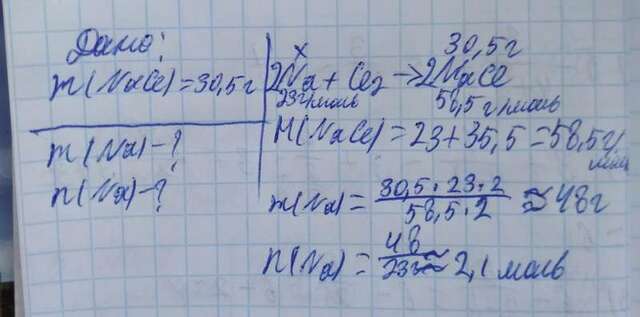 Дано:
m(NaCl)=30,5г
m(Na)-?
n(Na)-?
x 30,5г
2Na + Cl₂ → 2NaCl
23г/моль 58,5г/моль
M(NaCl)=23+35,5=58,5г/моль
m(Na)= 30,5·23·2 / 58,5·2 ≈ 48г
n(Na)= 48 / 23 ≈ 2,1 моль